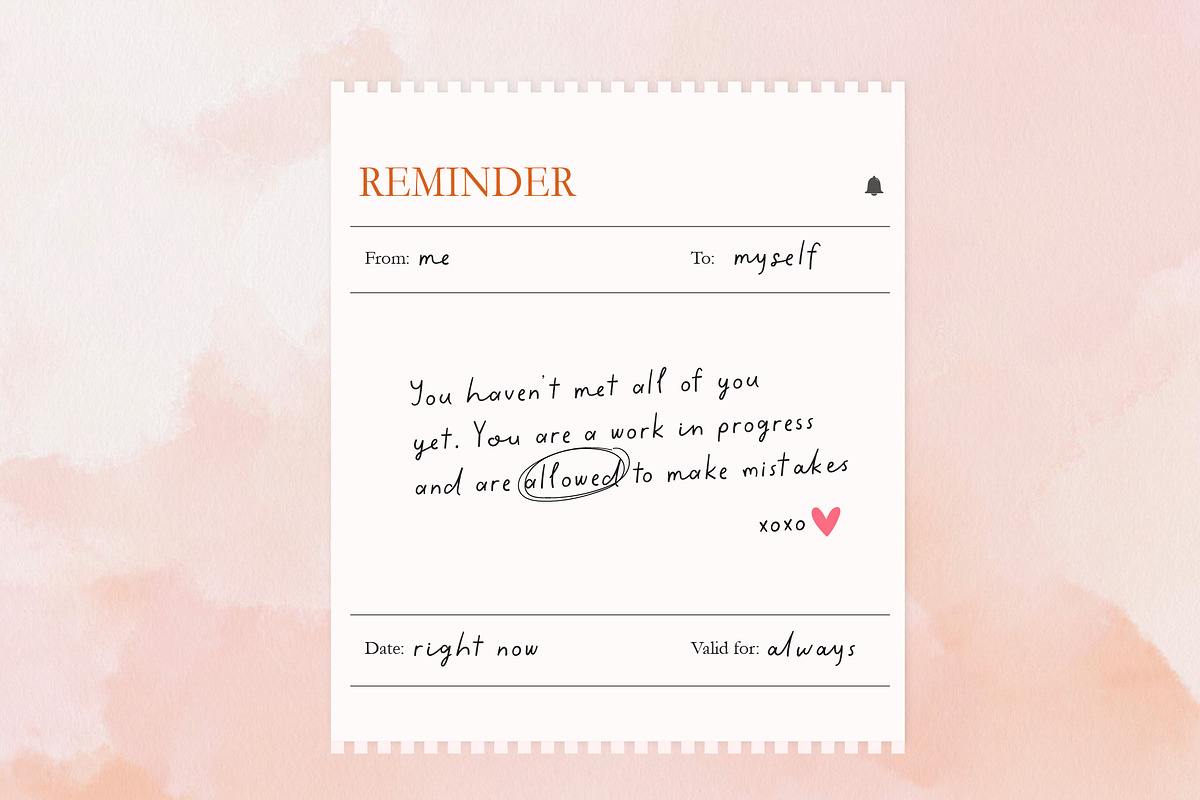 REMINDER
From: me To: myself
You haven't met all of you
yet. You are a work in progress
and are allowed to make mistakes
xoxo
Date: right now Valid for: always